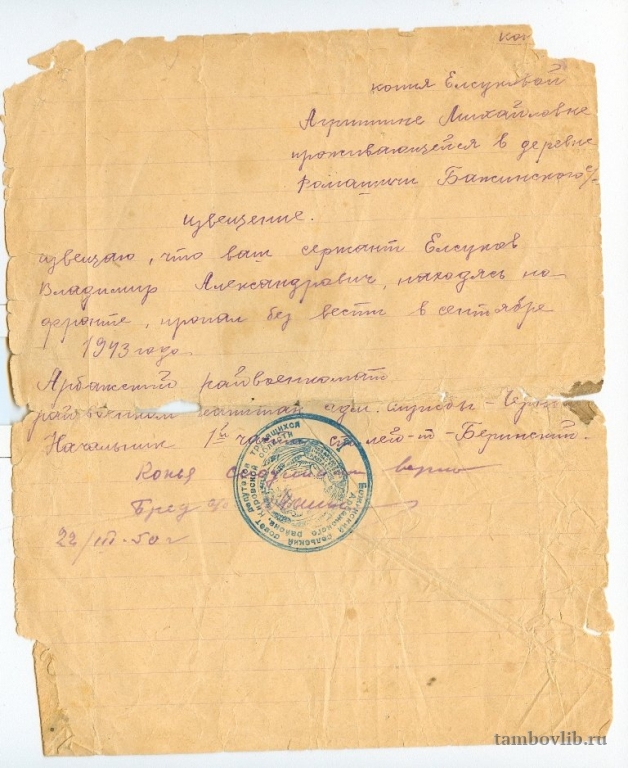 коп
копия Елсуковой
Агрипине Михайловне
проживающейся в деревне
Ромашичи Бажинского с/с
извещение.
извещаю, что ваш сержант Елсуков
Владимир Александрович, находясь на
фронте, пропал без вести в сентябре
1943 года.
Арбажский райвоенкомат
райвоенком капитан адм. службы -
Начальник 1й части лей-т - Беринский.
Копья верно
Пред с/с
22/III-50 г
сельский совет депутатов трудящихся
района, Кировской области
tambovlib.ru